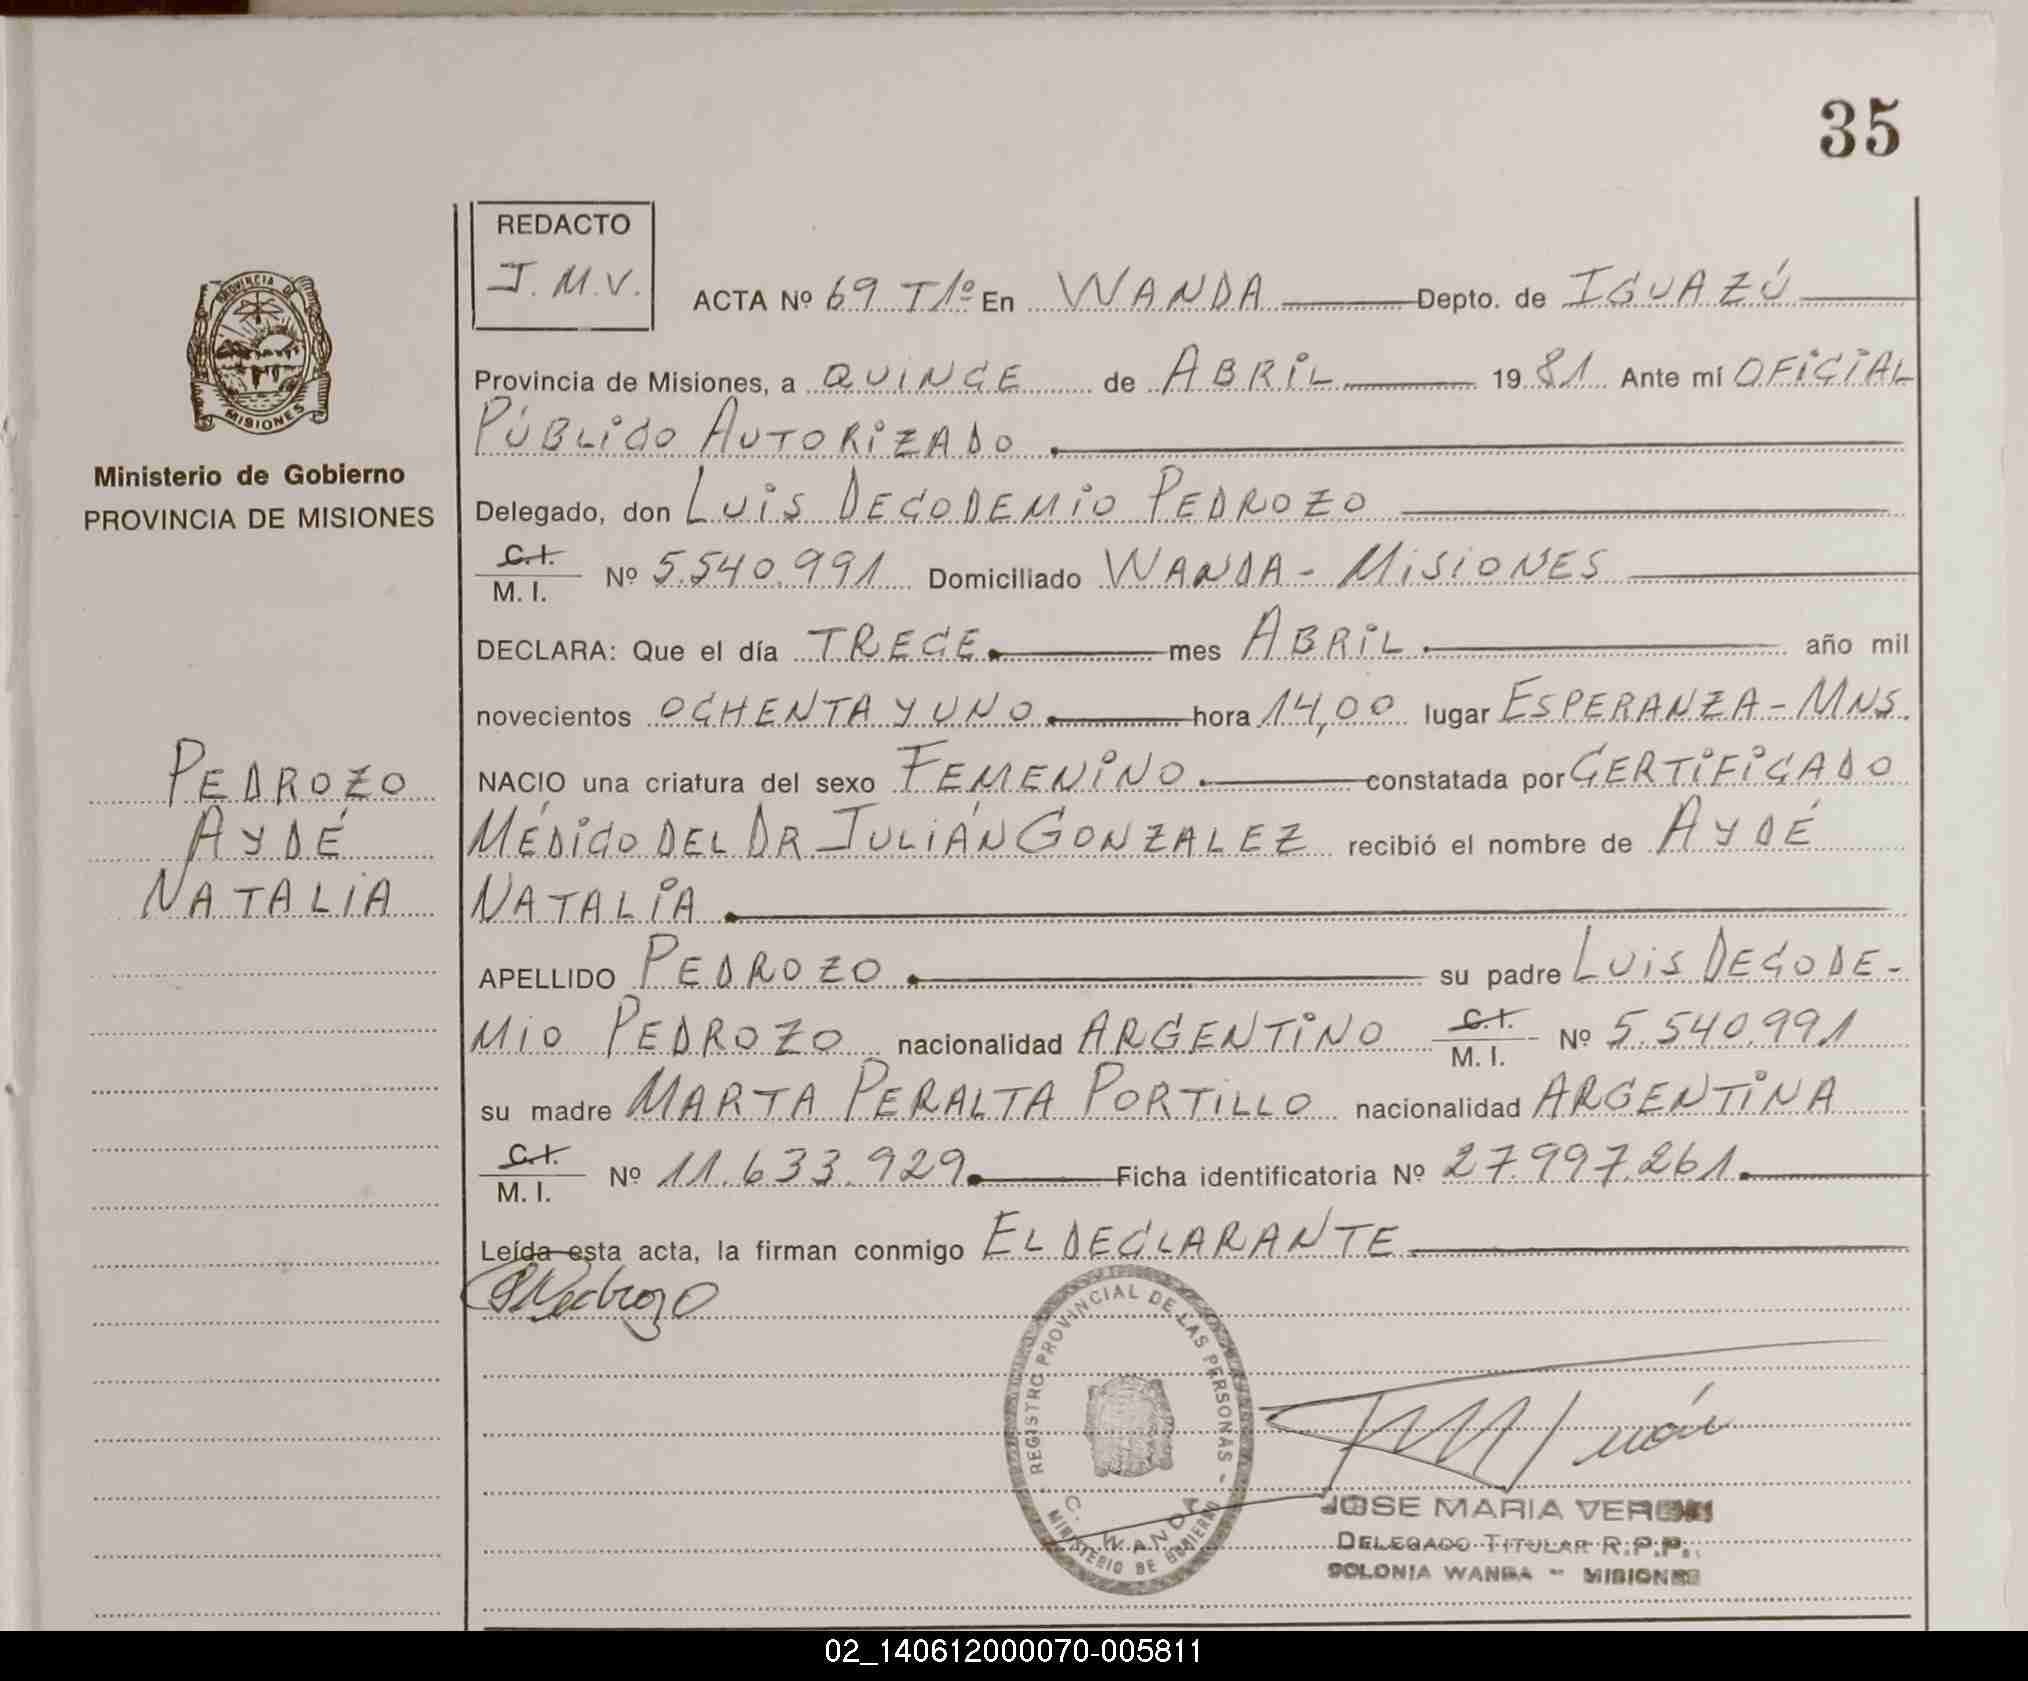 35
REDACTO
J. M. V.
ACTA Nº 69 T1º En WANDA Depto. de IGUAZÚ
Provincia de Misiones, a QUINCE de ABRIL 19 81 Ante mí OFICIAL
PÚBLICO AUTORIZADO
Delegado, don LUIS DECODEMIO PEDROZO
C.I.
M. I. Nº 5.540.991 Domiciliado WANDA - MISIONES
DECLARA: Que el día TRECE mes ABRIL año mil
novecientos OCHENTA Y UNO hora 14,00 lugar ESPERANZA - MNS.
NACIO una criatura del sexo FEMENINO constatada por CERTIFICADO
MÉDICO DEL DR. JULIÁN GONZALEZ recibió el nombre de AYDÉ
NATALIA
APELLIDO PEDROZO su padre LUIS DECODE-
MIO PEDROZO nacionalidad ARGENTINO C.I.
M. I. Nº 5.540.991
su madre MARTA PERALTA PORTILLO nacionalidad ARGENTINA
C.I.
M. I. Nº 11.633.929 Ficha identificatoria Nº 27.997.261
Leída esta acta, la firman conmigo EL DECLARANTE
Pedrozo
PROVINCIA DE
MISIONES
Ministerio de Gobierno
PROVINCIA DE MISIONES
PEDROZO
AYDÉ
NATALIA
REGISTRO PROVINCIAL DE LAS PERSONAS -
C. WANDA
MINISTERIO DE GOBIERNO
JOSE MARIA
DELEGADO TITULAR R.P.P.
COLONIA WANDA - MISIONES
02_140612000070-005811